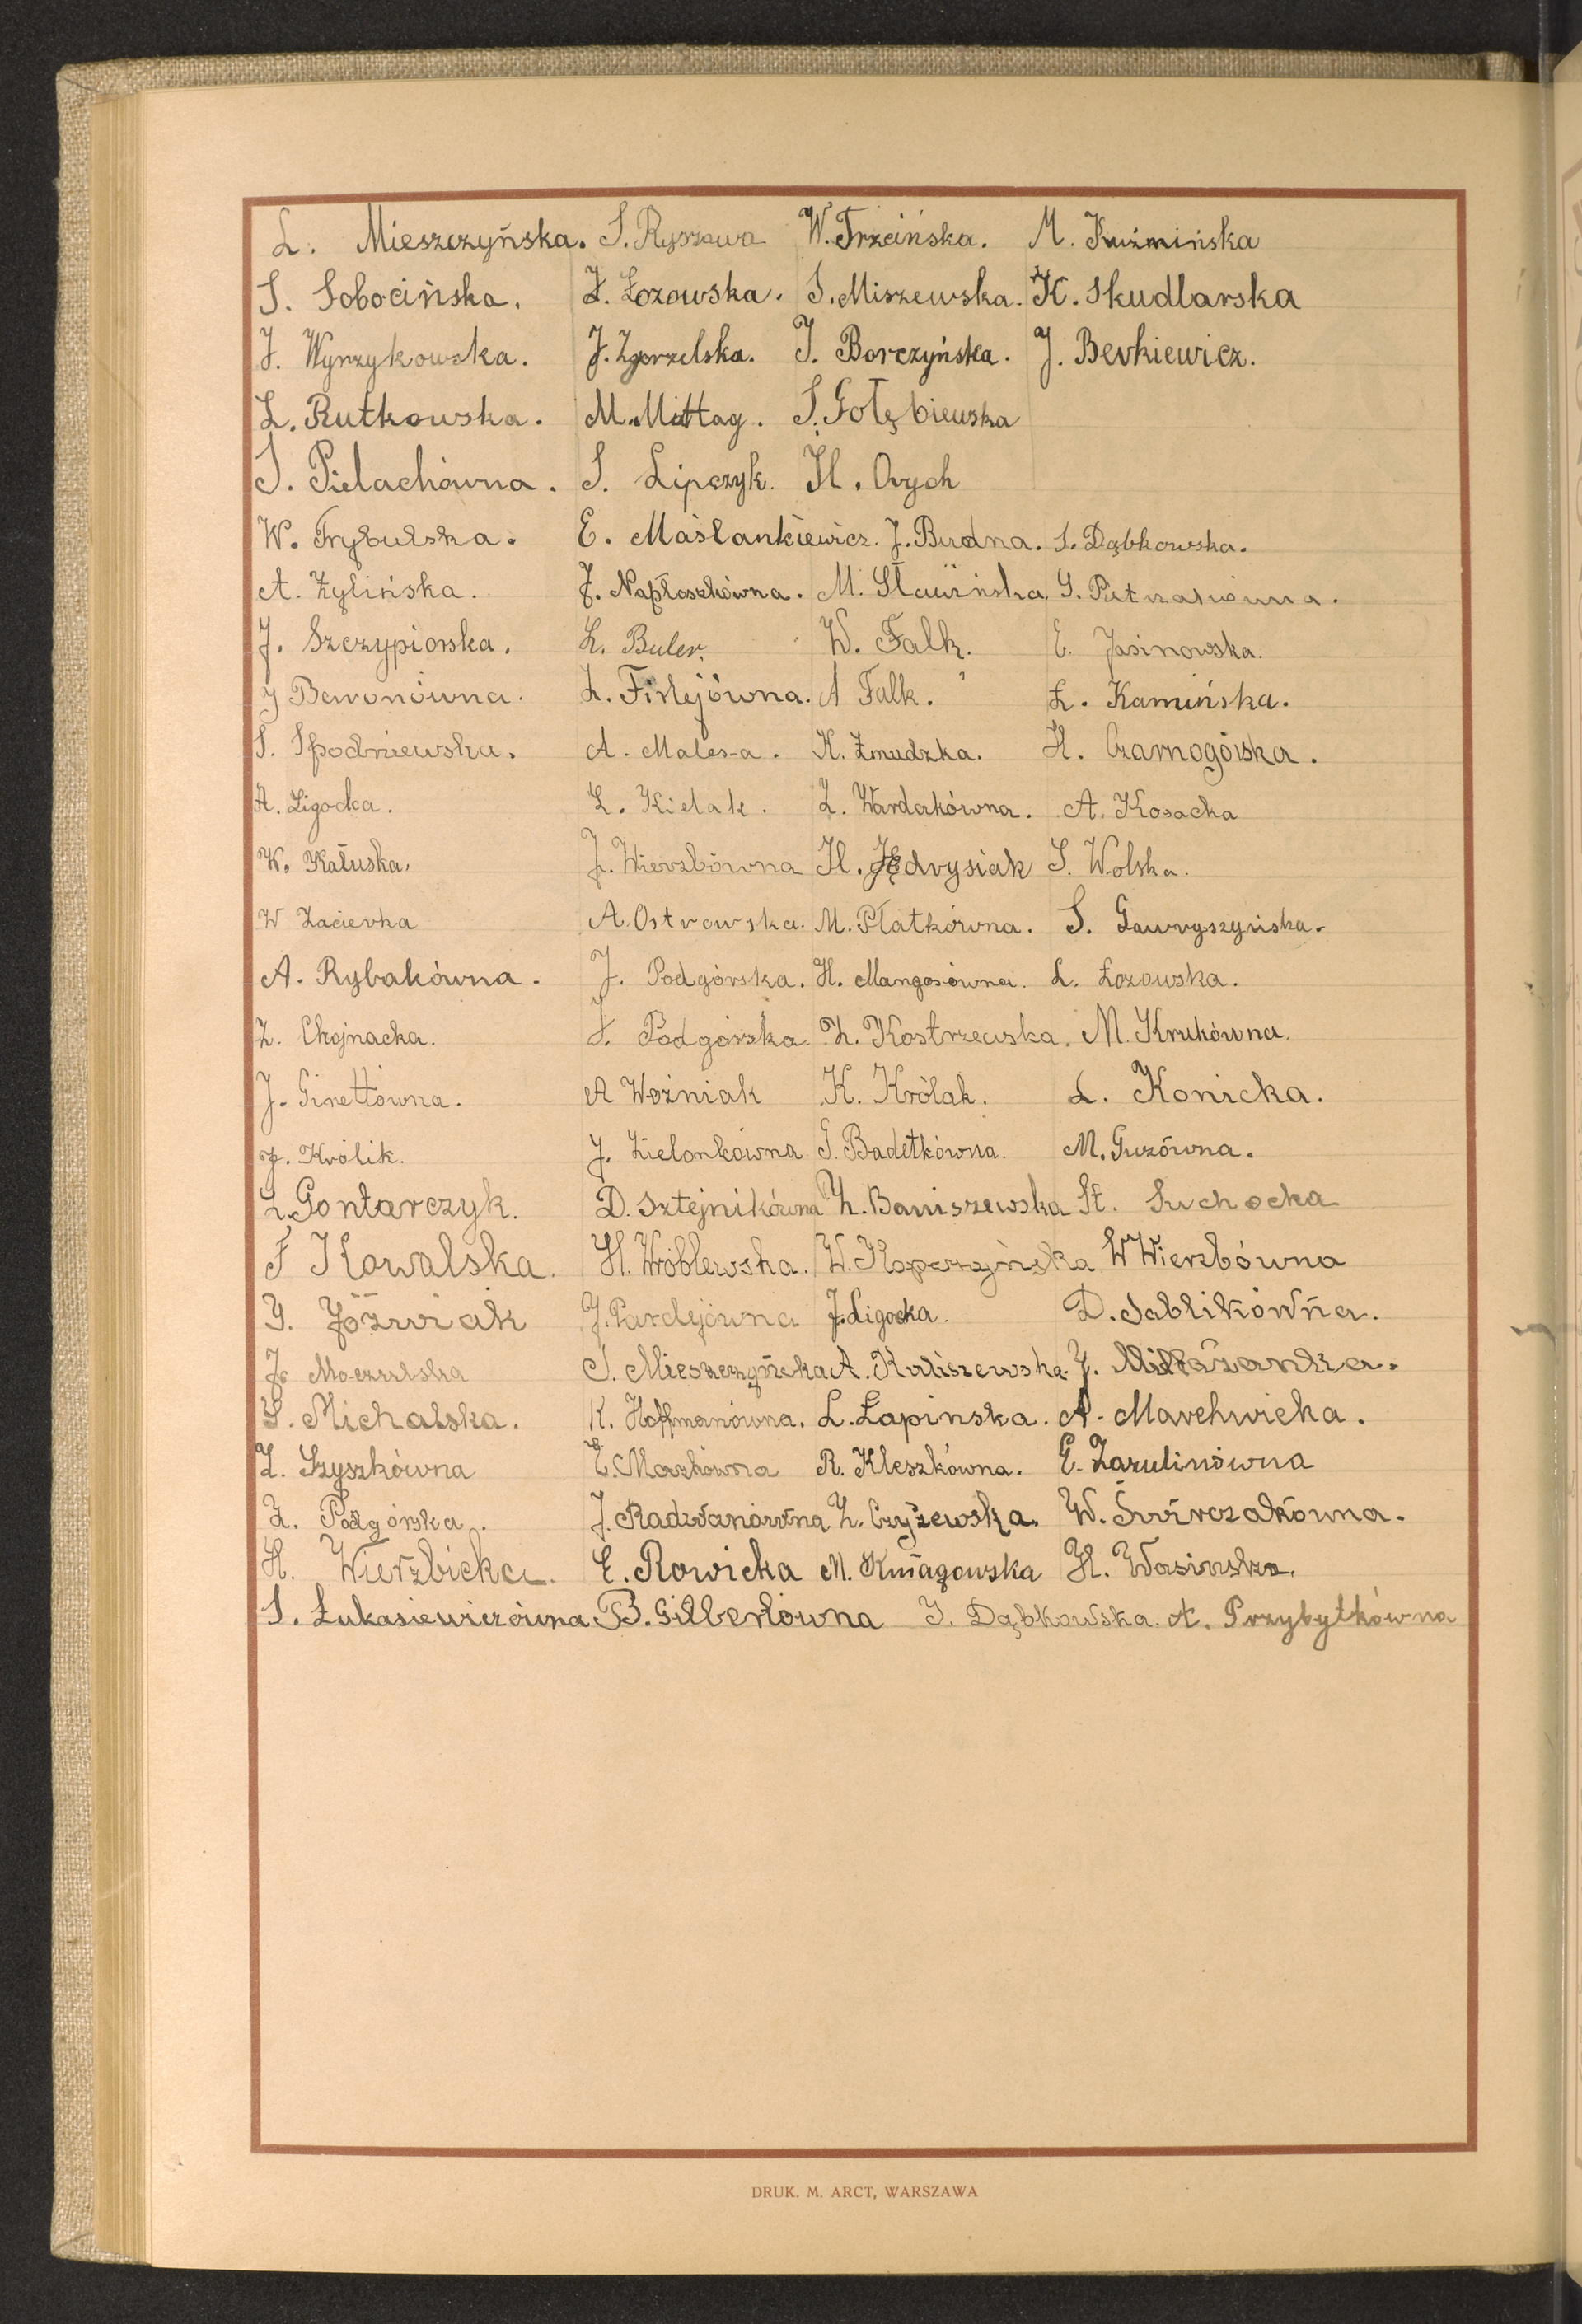 L. Mieszczyńska. S. Ryszawa W. Trzcińska. M. Kuźmińska
S. Sobocińska. Z. Łozowska. S. Miszewska. K. Skudlarska
J. Wyrzykowska. J. Zgorzelska. J. Borczyńska. J. Berkiewicz.
Z. Rutkowska. M. Mittag. S. Gołębiewska
S. Pielachówna. S. Lipczyk. H. Orych
W. Trybulska. E. Maślankiewicz. J. Budna. S. Dąbkowska.
A. Żylińska. J. Napłoszkówna. M. Sławińska S. Pietrzakówna.
J. Szczypiorska. Z. Buler. W. Falk. E. Jasinowska.
J Beronówna. Z. Firlejówna. A Falk. Z. Kamińska.
S. Spodniewska. A. Malesa. K. Żmudzka. H. Czarnogórska.
A. Ligocka. Z. Kielak. Z. Wardakówna. A. Kosacka
W. Kałuska. J. Wierzbówna H. Jędrysiak S. Wolska.
W Zacierka A. Ostrowska. M. Płatkówna. S. Gawryszyńska.
A. Rybakówna. J. Podgórska. H. Mangosówna. L. Łozowska.
Z. Chojnacka. J. Podgórska. Z. Kostrzewska. M. Krukówna.
J. Ginettówna. A Woźniak K. Królak. L. Konicka.
J. Królik. J. Zielonkówna G. Badetkówna. M. Guzówna.
Z. Gontarczyk. D. Sztejnikówna Z. Baniszewska St. Suchocka
F Kowalska. H. Wróblewska. W. Koperzyńska W Wierzbówna
G. Jóźwiak J. Pardejówna J. Ligocka. D. Sablikówna.
J. Moczulska S. Mieszczyńska A. Kaliszewska J.
S. Michalska. K. Hoffmanówna. L. Łapinska. A. Marchwicka.
Z. Szyszkówna E. Mrozkówna R. Kleszkówna. E. Zarulinówna
Z. Podgórska. J. Radwanówna Z. Czyżewska. W. Świrczakówna.
H. Wierzbicka. E. Rowicka M. Kmiązowska H. Wasinska.
S. Łukasiewiczówna B. Gilbertówna J. Dąbkowska. A. Przybytkówna
DRUK. M. ARCT, WARSZAWA